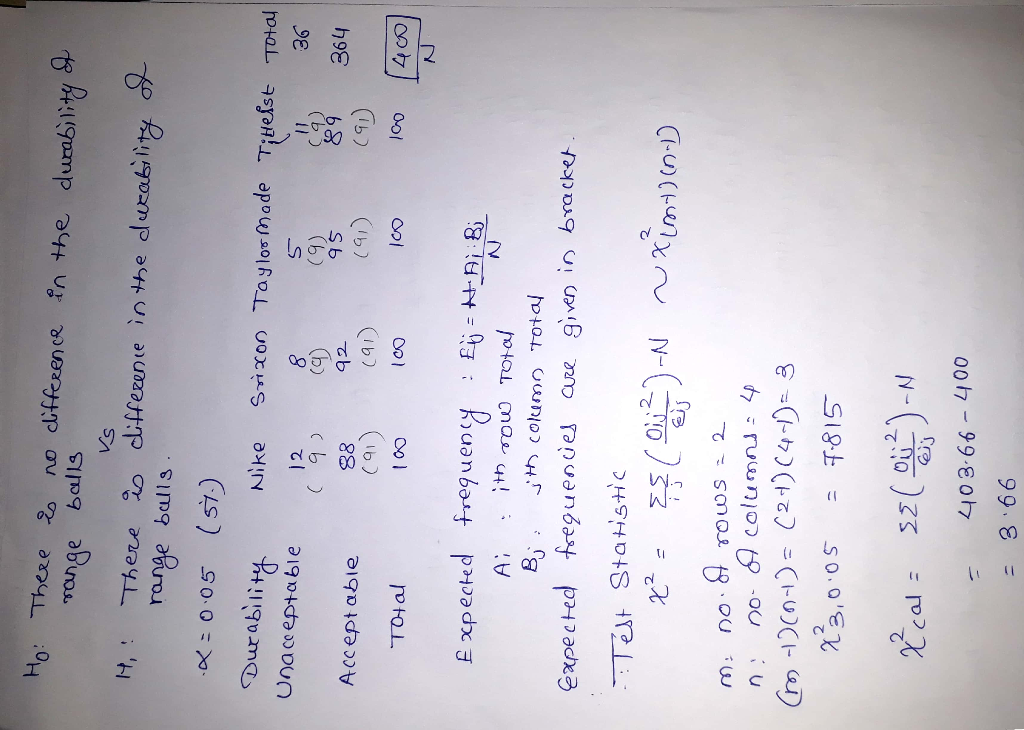 H₀: There is no difference in the durability of
range balls
Vs
H₁: There is difference in the durability of
range balls.
α = 0.05 (5%)
Durability Nike Srixon Taylormade Titlelst Total
Unacceptable 12 8 5 11 36
(9) (9) (9) (9)
Acceptable 88 92 95 89 364
(91) (91) (91) (91)
Total 100 100 100 100 400
N
Expected frequency : Eij = Ai·Bj / N
Ai : ith row Total
Bj : jth column Total
Expected frequencies are given in bracket.
∴ Test Statistic
χ² = ΣΣ (Oij² / Eij) - N ~ χ²(m-1)(n-1)
i j
m: no. of rows = 2
n: no. of columns = 4
(m-1)(n-1) = (2-1)(4-1) = 3
χ²3,0.05 = 7.815
χ²cal = ΣΣ (Oij² / Eij) - N
= 403.66 - 400
= 3.66